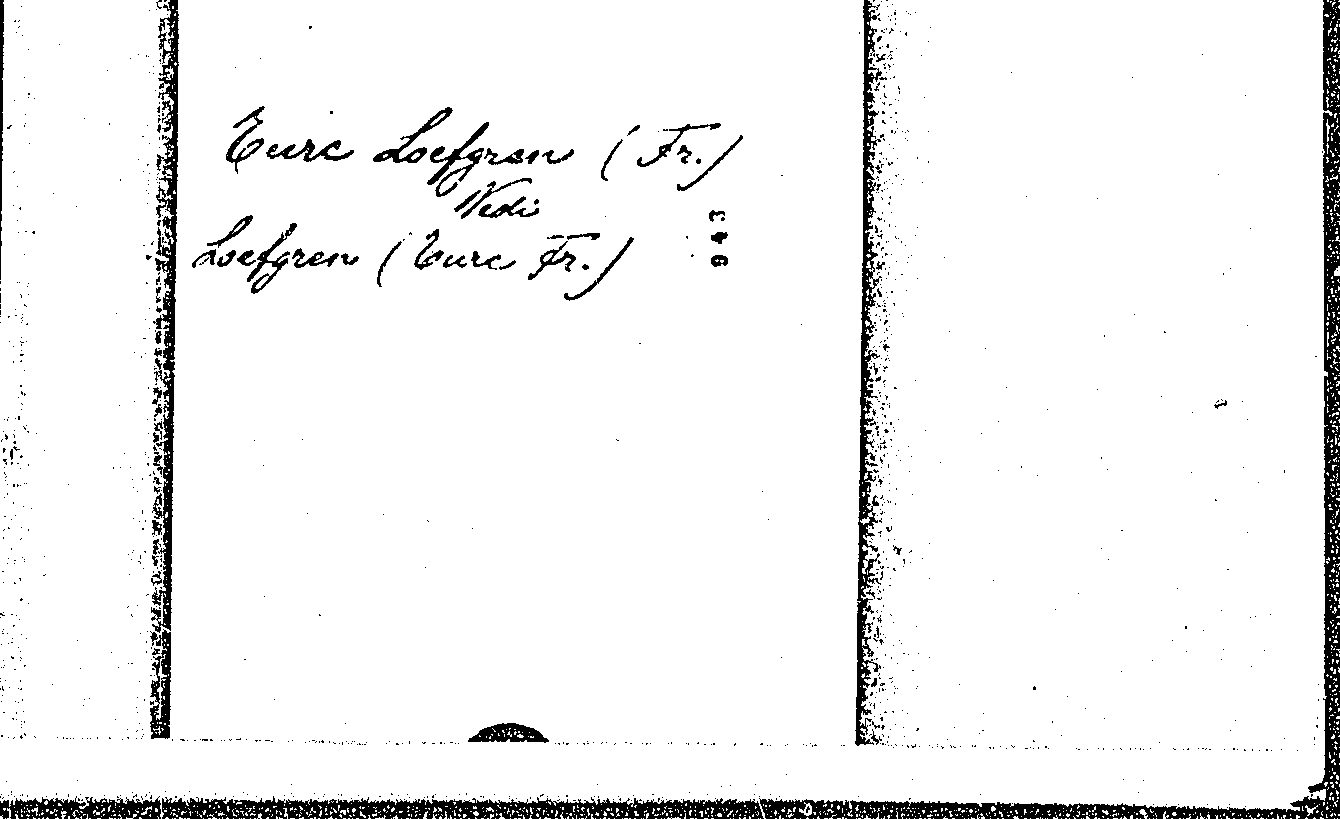 Eurc Loefgren (Fr.)
Vedi
Loefgren (Eurc Fr.)
943